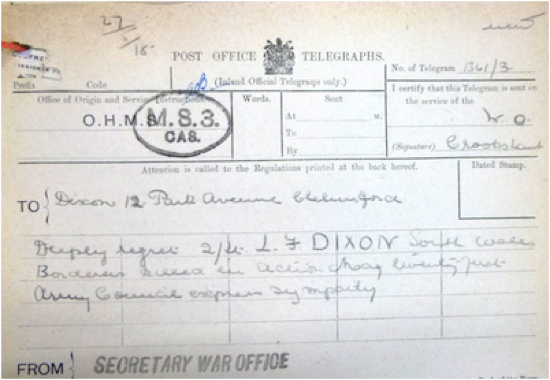 27/5/18
POST OFFICE TELEGRAPHS.
(Inland Official Telegrams only.)
No. of Telegram 1361/3
Prefix Code
Office of Origin and Service Instructions.
Words.
Sent
At M.
To
By
I certify that this Telegram is sent on
the service of the
W. O.
(Signature)
O.H.M.S.
M.S.3.
CAS.
Attention is called to the Regulations printed at the back hereof.
Dated Stamp.
TO Dixon 12 Park Avenue Chelmsford
Deeply regret 2/Lt. L F DIXON South Wales
Borderers killed in action May twenty first
Army Council express sympathy
FROM SECRETARY WAR OFFICE